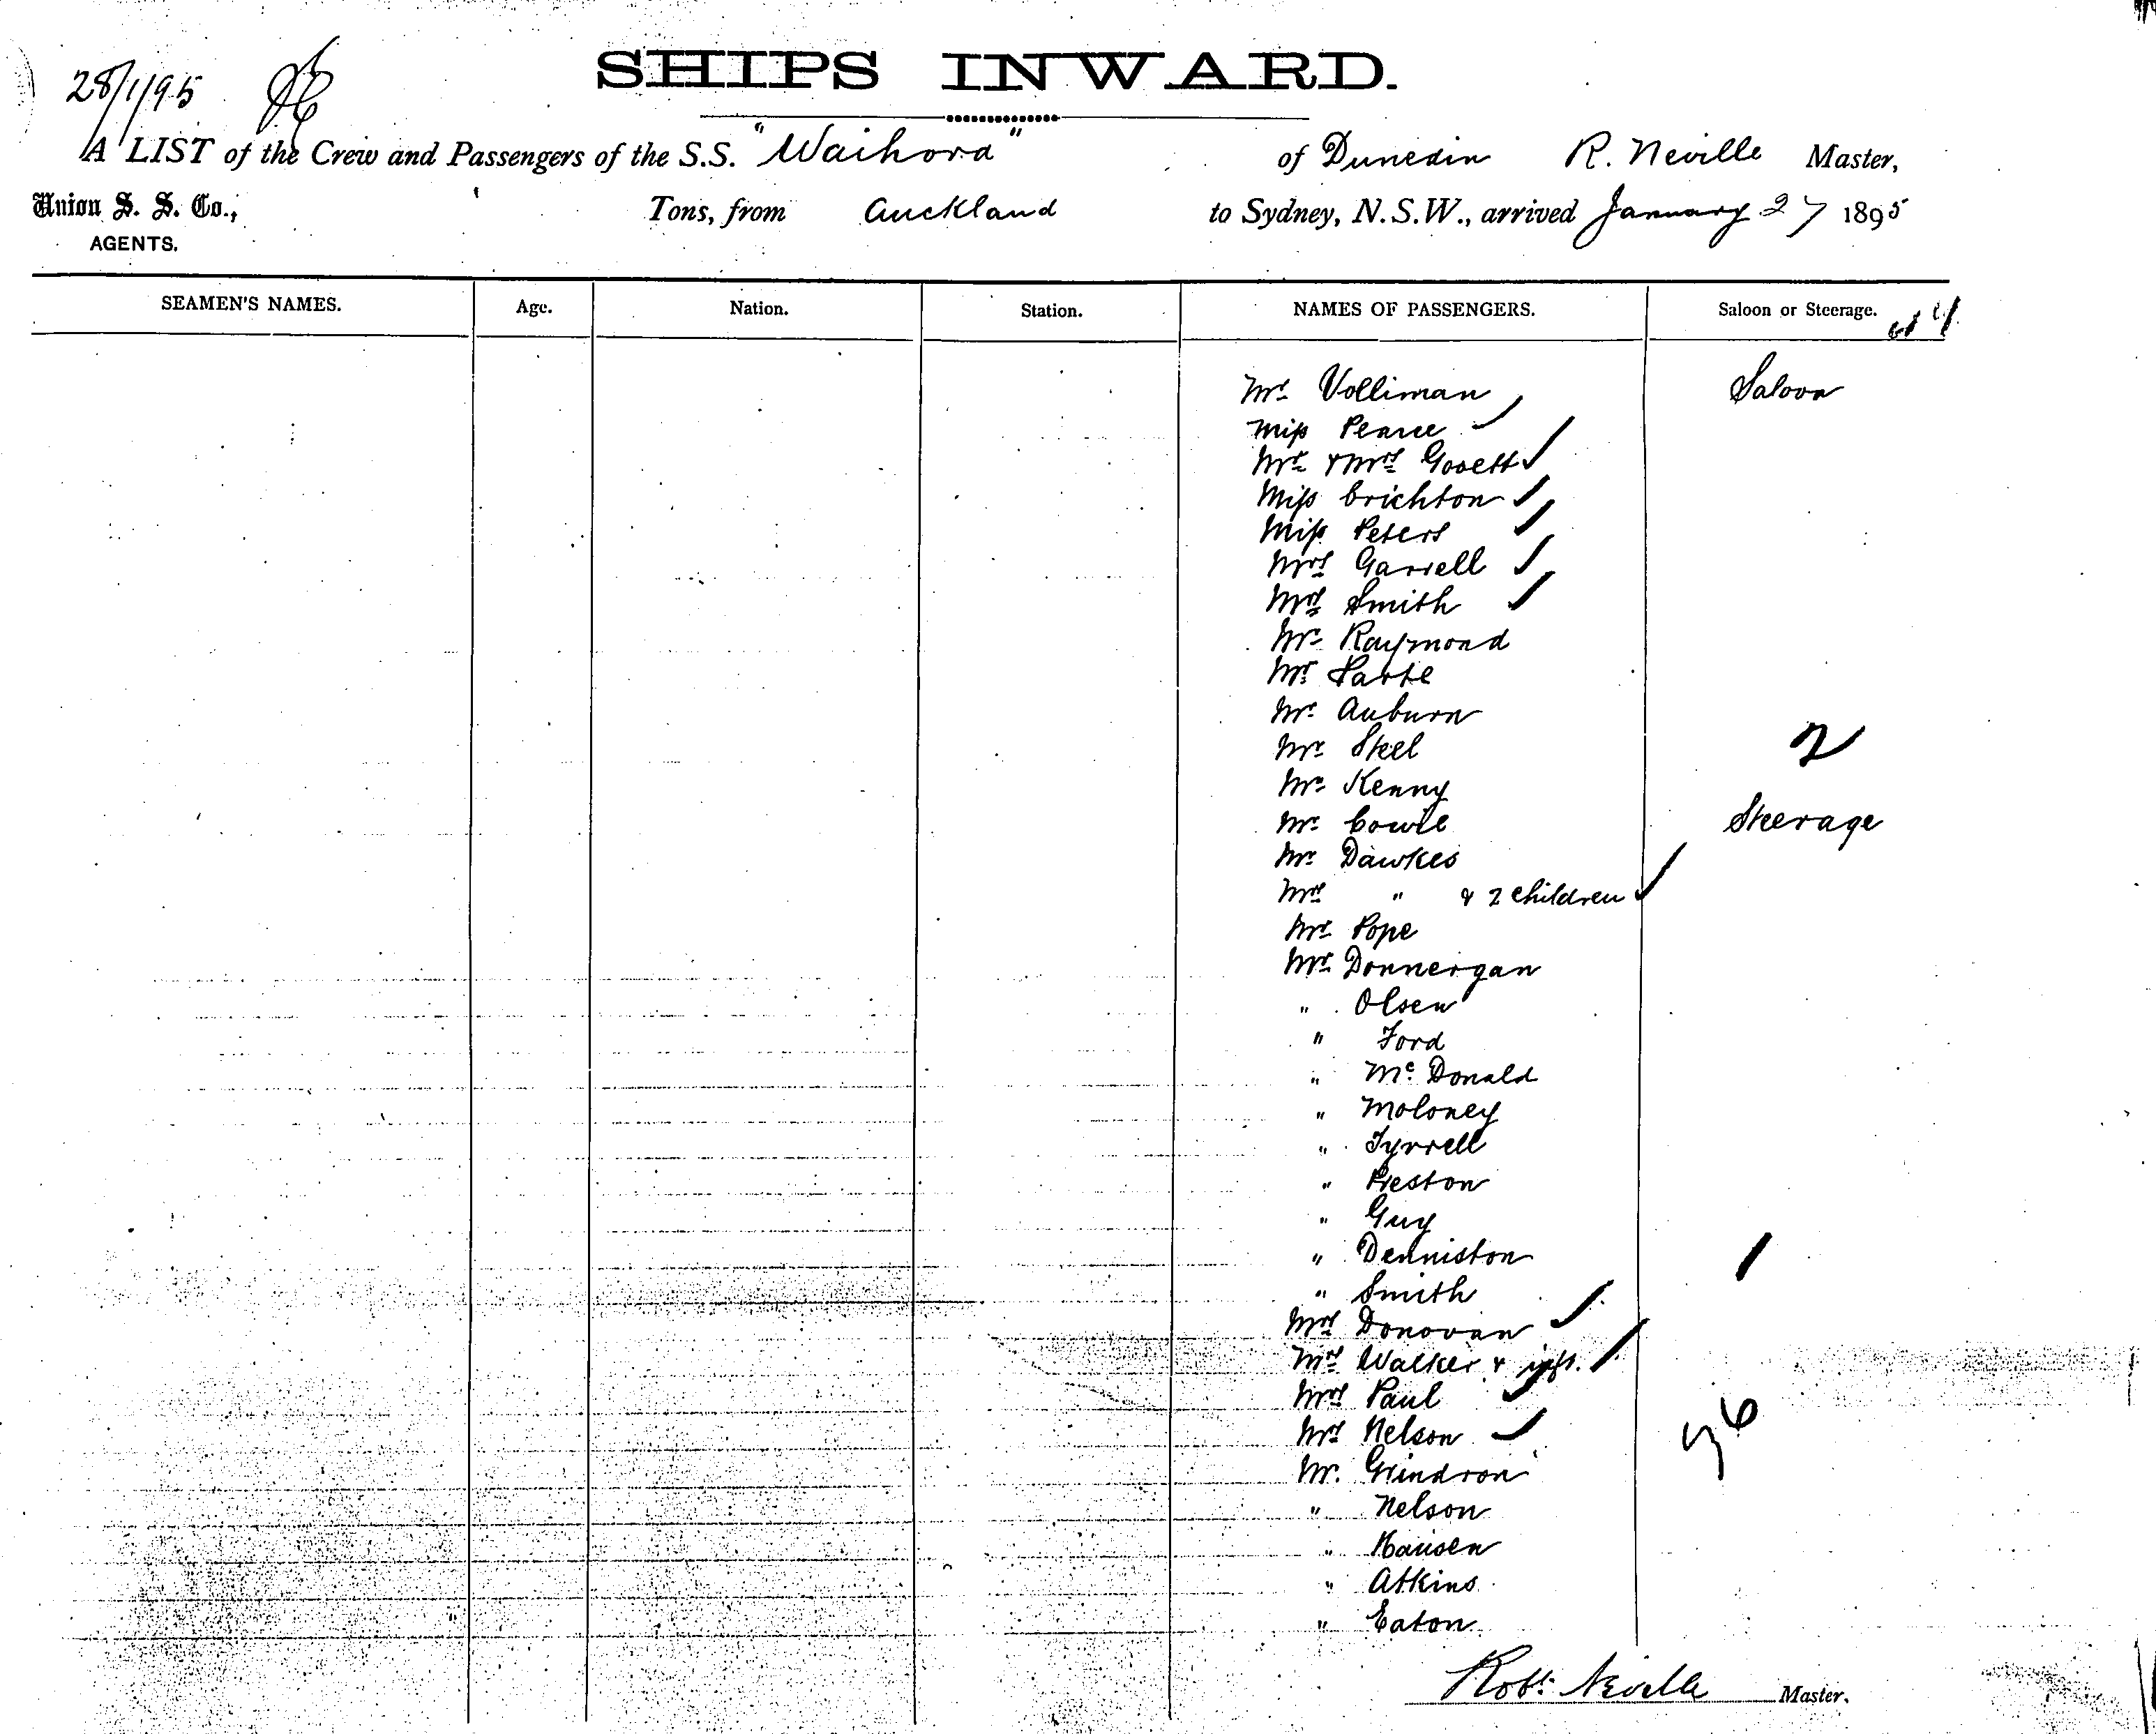 28/1/95
SHIPS INWARD.
A LIST of the Crew and Passengers of the S.S. "Waihora" of Dunedin R. Neville Master,
Union S. S. Co., Tons, from Auckland to Sydney, N.S.W., arrived January 27 1895
AGENTS.
SEAMEN'S NAMES. Age. Nation. Station. NAMES OF PASSENGERS. Saloon or Steerage.
Mr Volliman Saloon
Miss Pearce
Mr & Mrs Govett
Miss Crichton
Miss Peters
Mrs Garrell
Mrs Smith
Mr Raymond
Mr
Mr Auburn
Mr Steel 2
Mr Kenny
Mr Cowie Steerage
Mr Dawkes
Mrs " & 2 children
Mr Pope
Mr Donnergan
" Olsen
" Ford
" McDonald
" Moloney
" Tyrrell
" Preston
" Guy
" Denniston 1
" Smith
Mrs Donovan
Mrs Walker & inft.
Mrs Paul
Mrs Nelson
Mr. Grindron
" Nelson
" Hansen
" Atkins
" Eaton
Robt Neville Master.